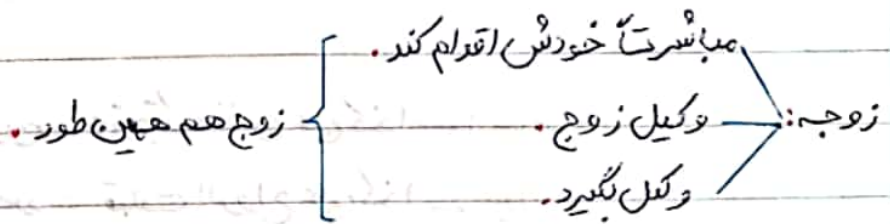 زوجه: مباشرتاً خودش اقدام کند.
وکیل زوج.
وکیل بگیرد.
زوج هم همین طور.